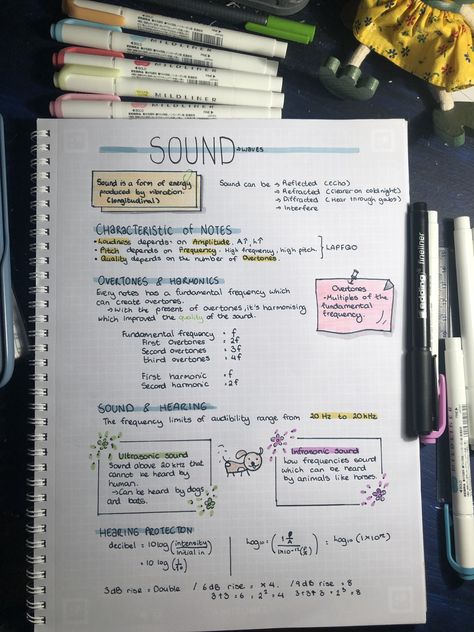 MILDLINER
MILDLINER
MILDLINER
MILDLINER
MILDLINER
SOUND → waves
Sound is a form of energy
produced by vibration.
(longitudinal)
Sound can be → Reflected (echo)
→ Refracted (clearer on cold night)
→ Diffracted (Hear through gaps)
→ Interfere
CHARACTERISTIC OF NOTES
• Loudness depends on Amplitude. A↑, L↑
• Pitch depends on Frequency. High frequency, high pitch.
• Quality depends on the number of Overtones.
LAPFQO
OVERTONES & HARMONICS
Every notes has a fundamental frequency which
can create overtones.
→ With the present of overtones, it's harmonising
which improved the quality of the sound.
Overtones
- Multiples of the
fundamental
frequency.
Fundamental frequency = f
First overtones = 2f
Second overtones = 3f
third overtones = 4f
First harmonic = f
Second harmonic = 2f
SOUND & HEARING
The frequency limits of audibility range from 20 Hz to 20 kHz
Ultrasonic sound
Sound above 20 kHz that
cannot be heard by
human.
→ Can be heard by dogs
and bats.
Infrasonic sound
Low frequencies sound
which can be heard
by animals like horses.
HEARING PROTECTION
decibel = 10 log (intensity / initial in)
= 10 log (I / I₀)
3dB rise = Double / 6dB rise = × 4. / 9dB rise = 8
3+3 = 6, 2² = 4 3+3+3 = 2³ = 8
edding fineliner